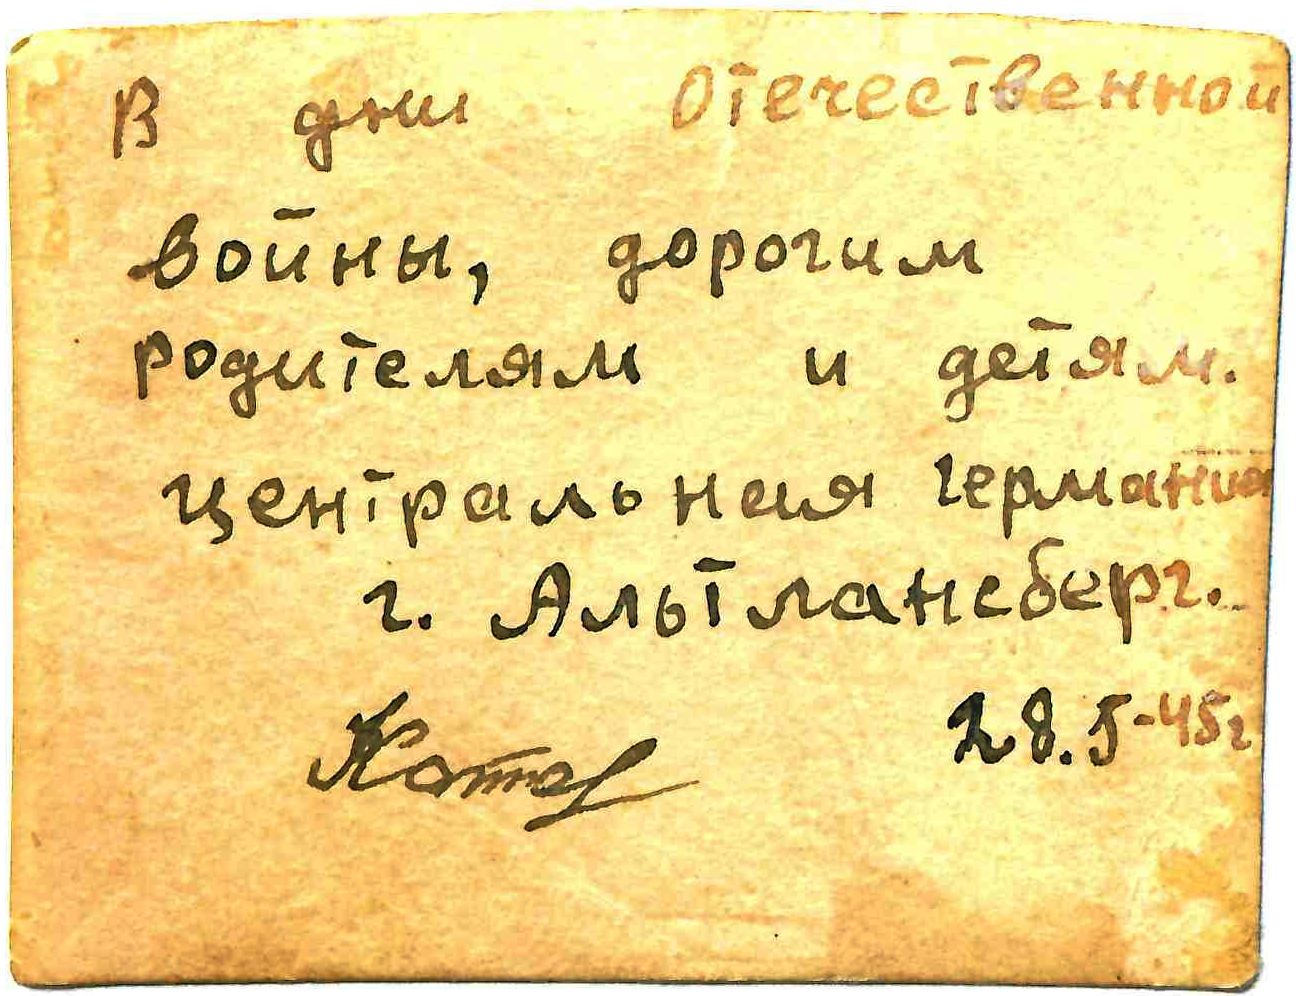 В дни Отечественной
войны, дорогим
родителям и детям.
центральная германия
г. Альтлансберг.
28.5-45г